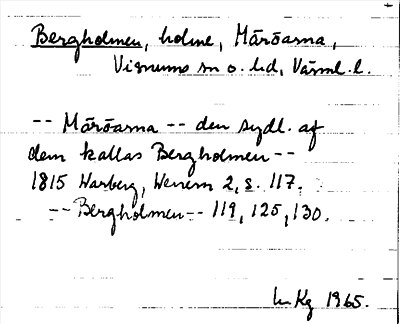 Bergholmen, holme, Märöarna,
Visnums sn o. hd, Värml. l.
-- Märöarna -- den sydl. af
dem kallas Bergholmen --
1815 Warberg, Wenern 2, s. 117.
-- Bergholmen -- 119, 125, 130.
Kg 1965.